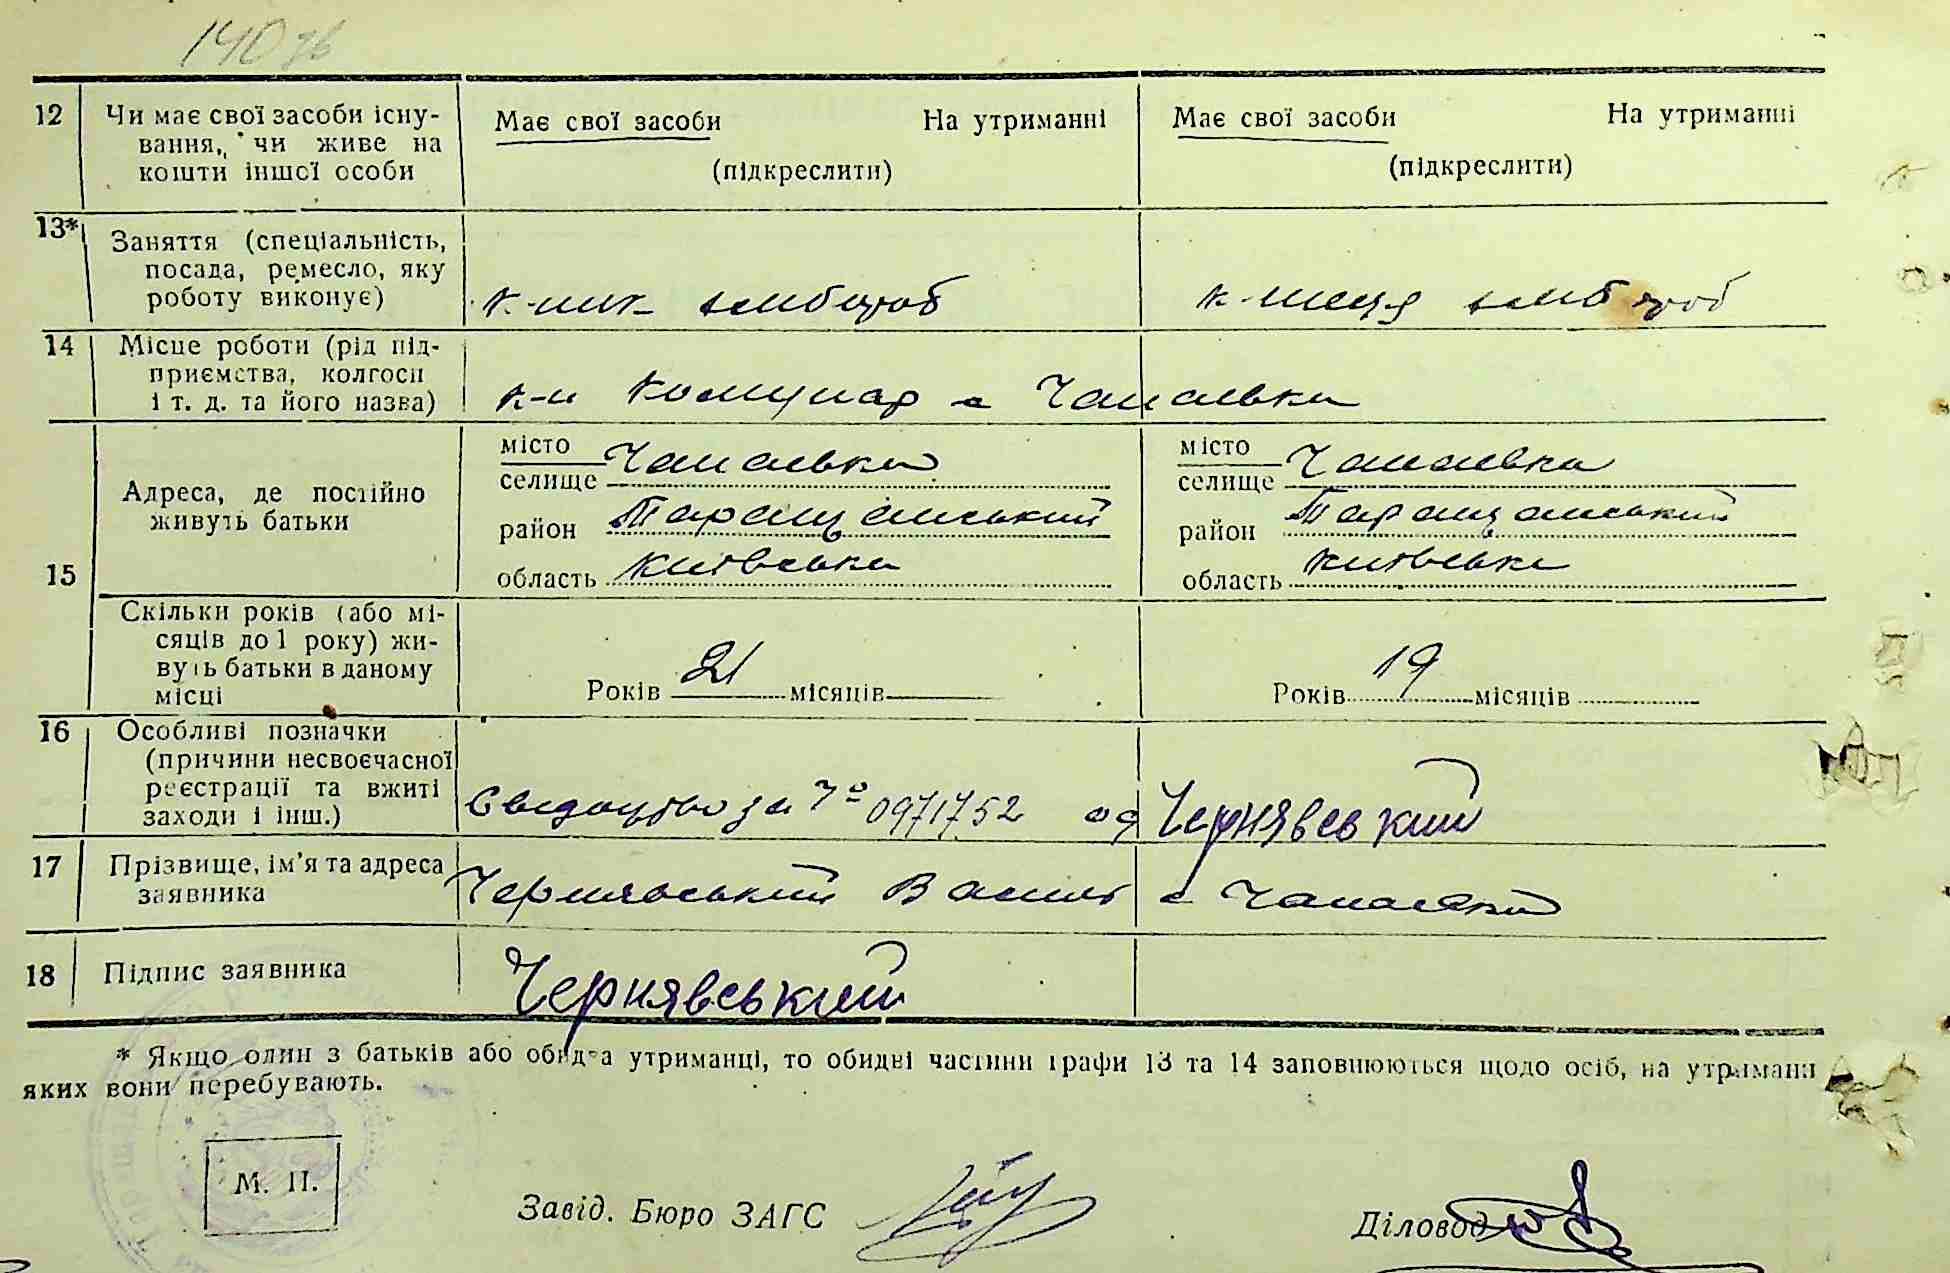 140 зв
12 Чи має свої засоби існу-
вання, чи живе на
кошти іншої особи
Має свої засоби На утриманні
(підкреслити)
Має свої засоби На утриманні
(підкреслити)
13* Заняття (спеціальність,
посада, ремесло, яку
роботу виконує)
к-ник
к-ниця
14 Місце роботи (рід під-
приємства, колгосп
і т. д. та його назва)
к-п Комунар с Чапаєвка
15 Адреса, де постійно
живуть батьки
місто
селище Чапаєвка
район Таращанський
область Київська
місто
селище Чапаєвка
район Таращанський
область Київська
Скільки років (або мі-
сяців до 1 року) жи-
вуть батьки в даному
місці
Років 21 місяців
Років 19 місяців
16 Особливі позначки
(причини несвоєчасної
реєстрації та вжиті
заходи і інш.)
Свидоцтво за № 0971752 од Чернявський
17 Прізвище, ім'я та адреса
заявника
Чернявський Василь с Чапаєвка
18 Підпис заявника
Чернявський
* Якщо один з батьків або обидва утриманці, то обидві частини графи 13 та 14 заповнюються щодо осіб, на утриманні
яких вони перебувають.
М. П.
Завід. Бюро ЗАГС
Діловод